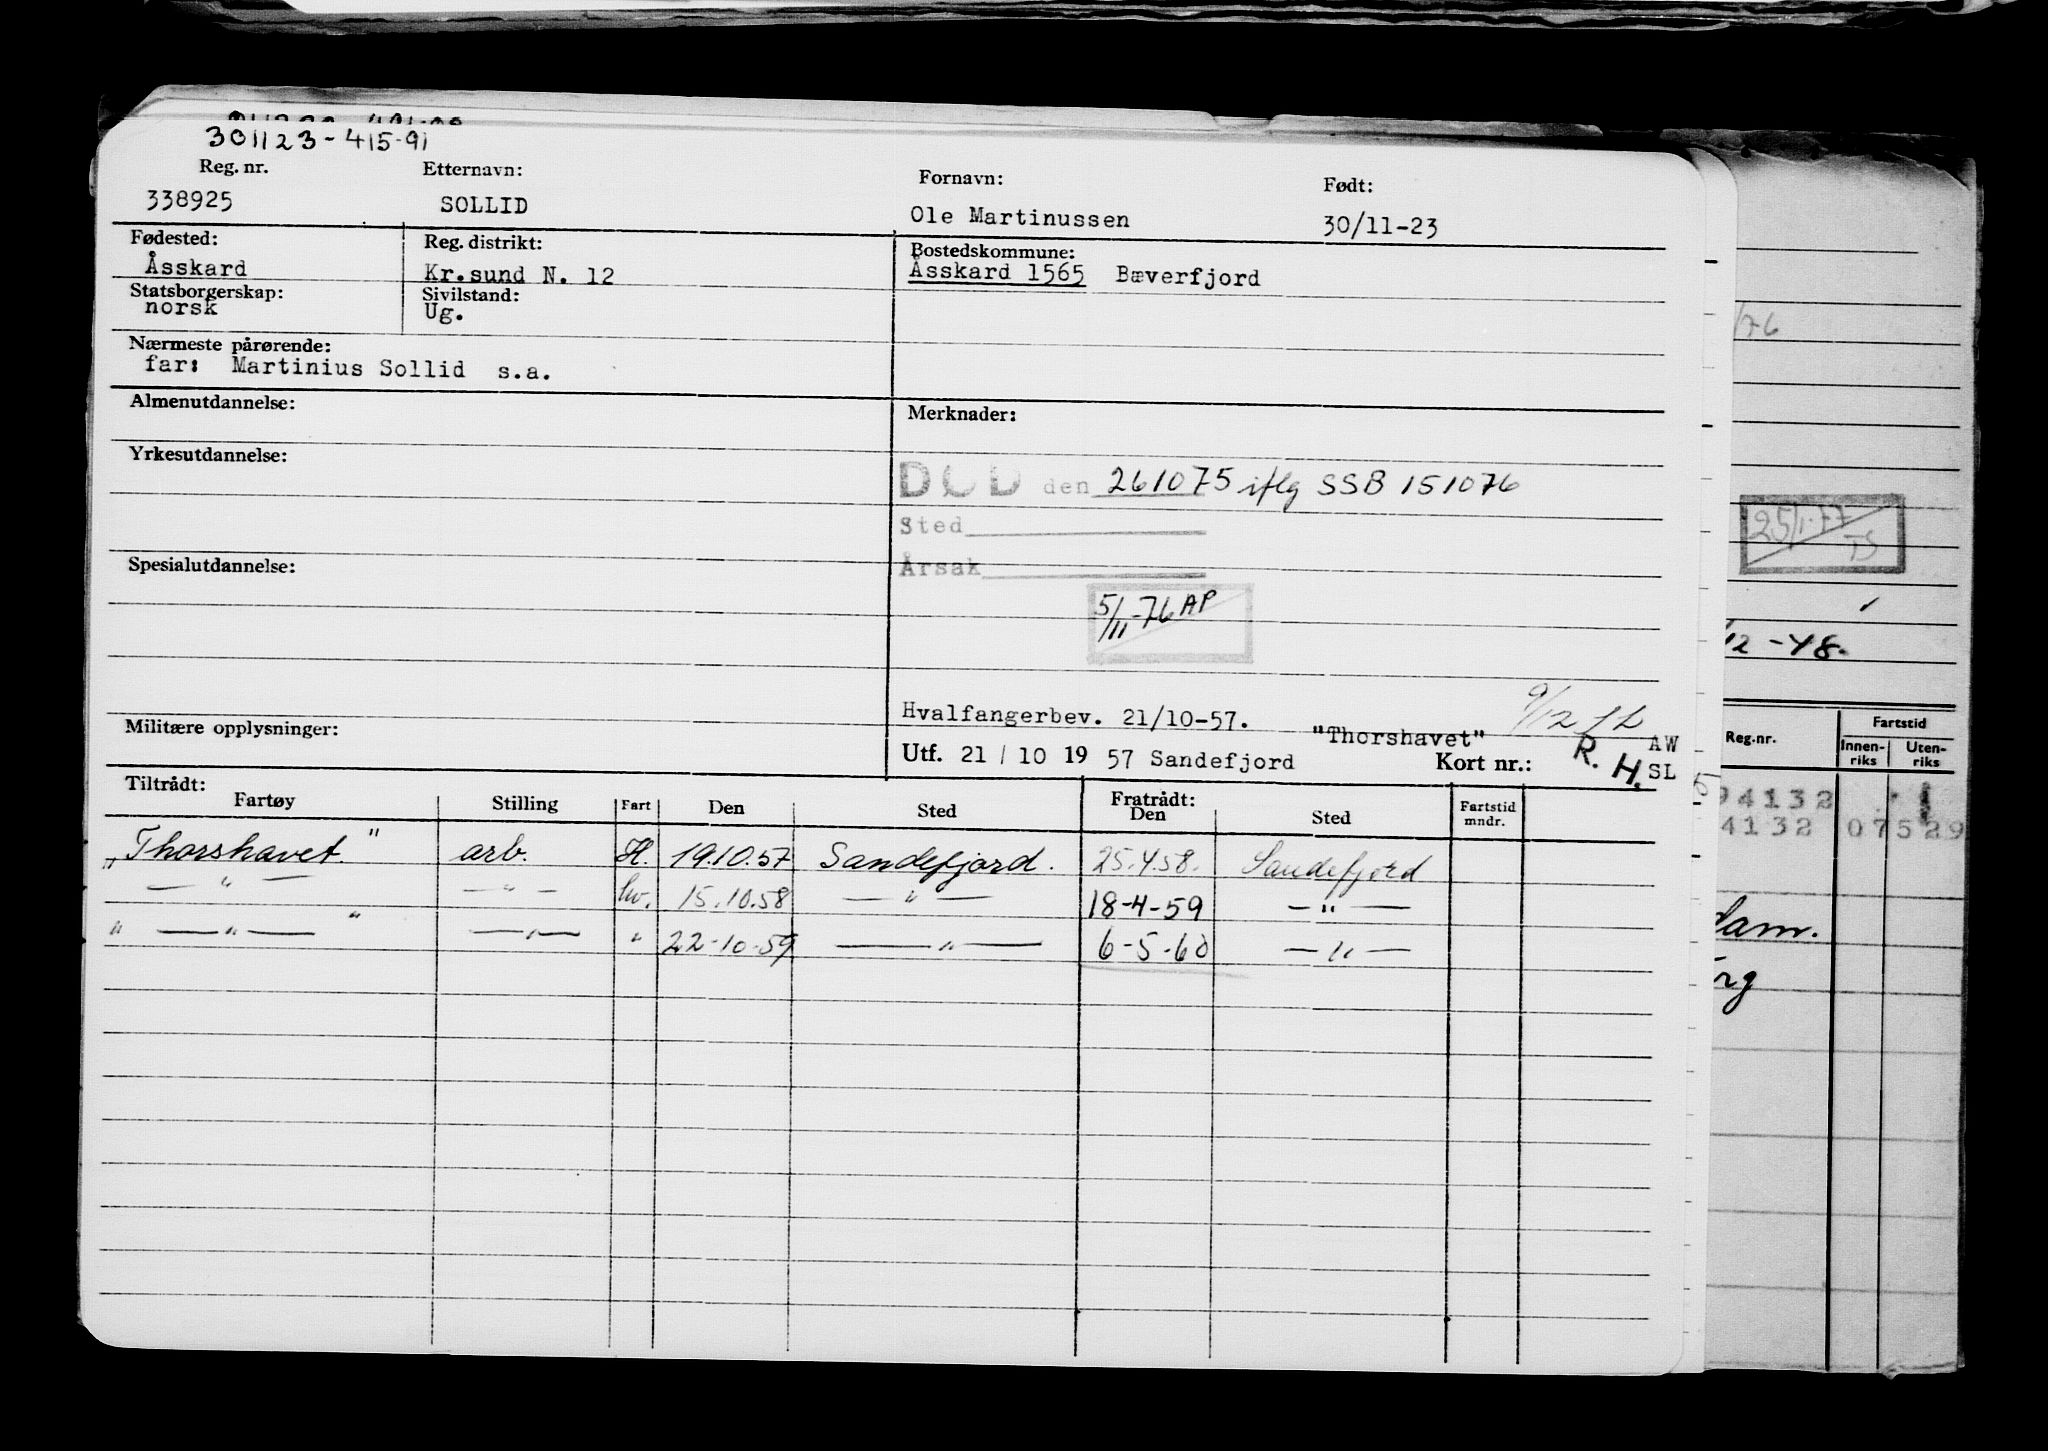 301123-415-91
Reg. nr. Etternavn: Fornavn: Født:
338925 SOLLID Ole Martinussen 30/11-23
Fødested: Reg. distrikt: Bostedskommune:
Åsskard Kr.sund N. 12 Åsskard 1565 Bæverfjord
Statsborgerskap: Sivilstand:
norsk Ug.
Nærmeste pårørende:
far: Martinius Sollid s.a.
Almenutdannelse: Merknader:
Yrkesutdannelse:
DØD den 261075 iflg SSB 151076
Sted
Årsak
Spesialutdannelse:
5/11-76 AP
Hvalfangerbev. 21/10-57. "Thorshavet" 9/12
Militære opplysninger:
Utf. 21 / 10 19 57 Sandefjord Kort nr.: R. H. AW
SL
Tiltrådt: Fratrådt:
Fartøy Stilling Fart Den Sted Den Sted Fartstid mndr.
"Thorshavet" arb. H. 19.10.57 Sandefjord. 25.4.58. Sandefjord
— " — — " — hv. 15.10.58 — " — 18-4-59 — " —
" — " — " — " — " 22-10-59 — " — 6-5-60 — " —
/76
25/1-77
TS
/12-48.
Reg.nr. Fartstid
Innen-riks Uten-riks
94132
4132 07529
dam.
rg